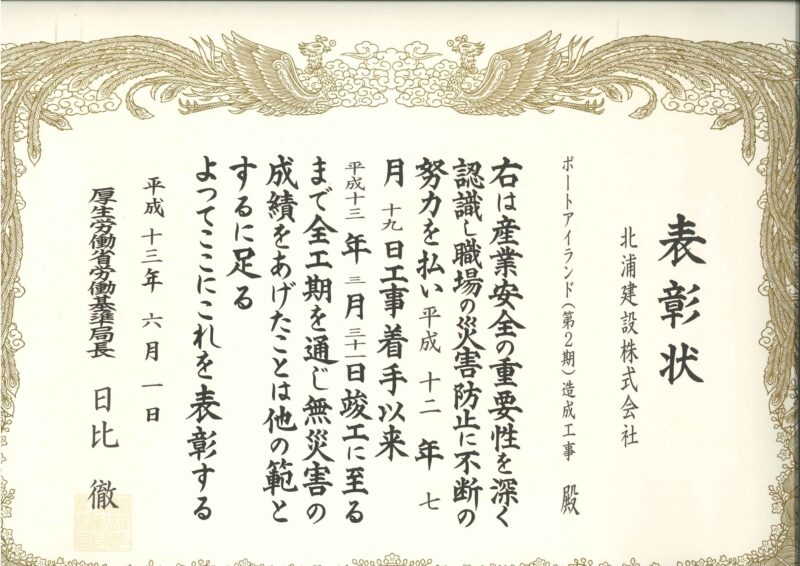 表彰状
北浦建設株式会社
ポートアイランド（第２期）造成工事 殿
右は産業安全の重要性を深く
認識し職場の災害防止に不断の
努力を払い平成十二年七
月十九日工事着手以来
平成十三年三月三十一日竣工に至る
まで全工期を通じ無災害の
成績をあげたことは他の範と
するに足る
よってここにこれを表彰する
平成十三年六月一日
厚生労働省労働基準局長 日比 徹